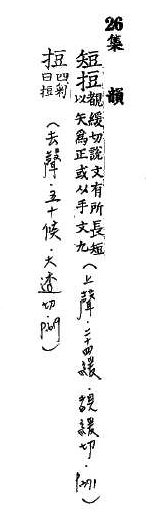 26 集韻
短𢭃覩緩切說文有所長短
以矢為正或从手文九
(上聲·二十四緩·覩緩切·P.371)
𢭃四匊
曰𢭃
(去聲·五十候·大透切·P.619)